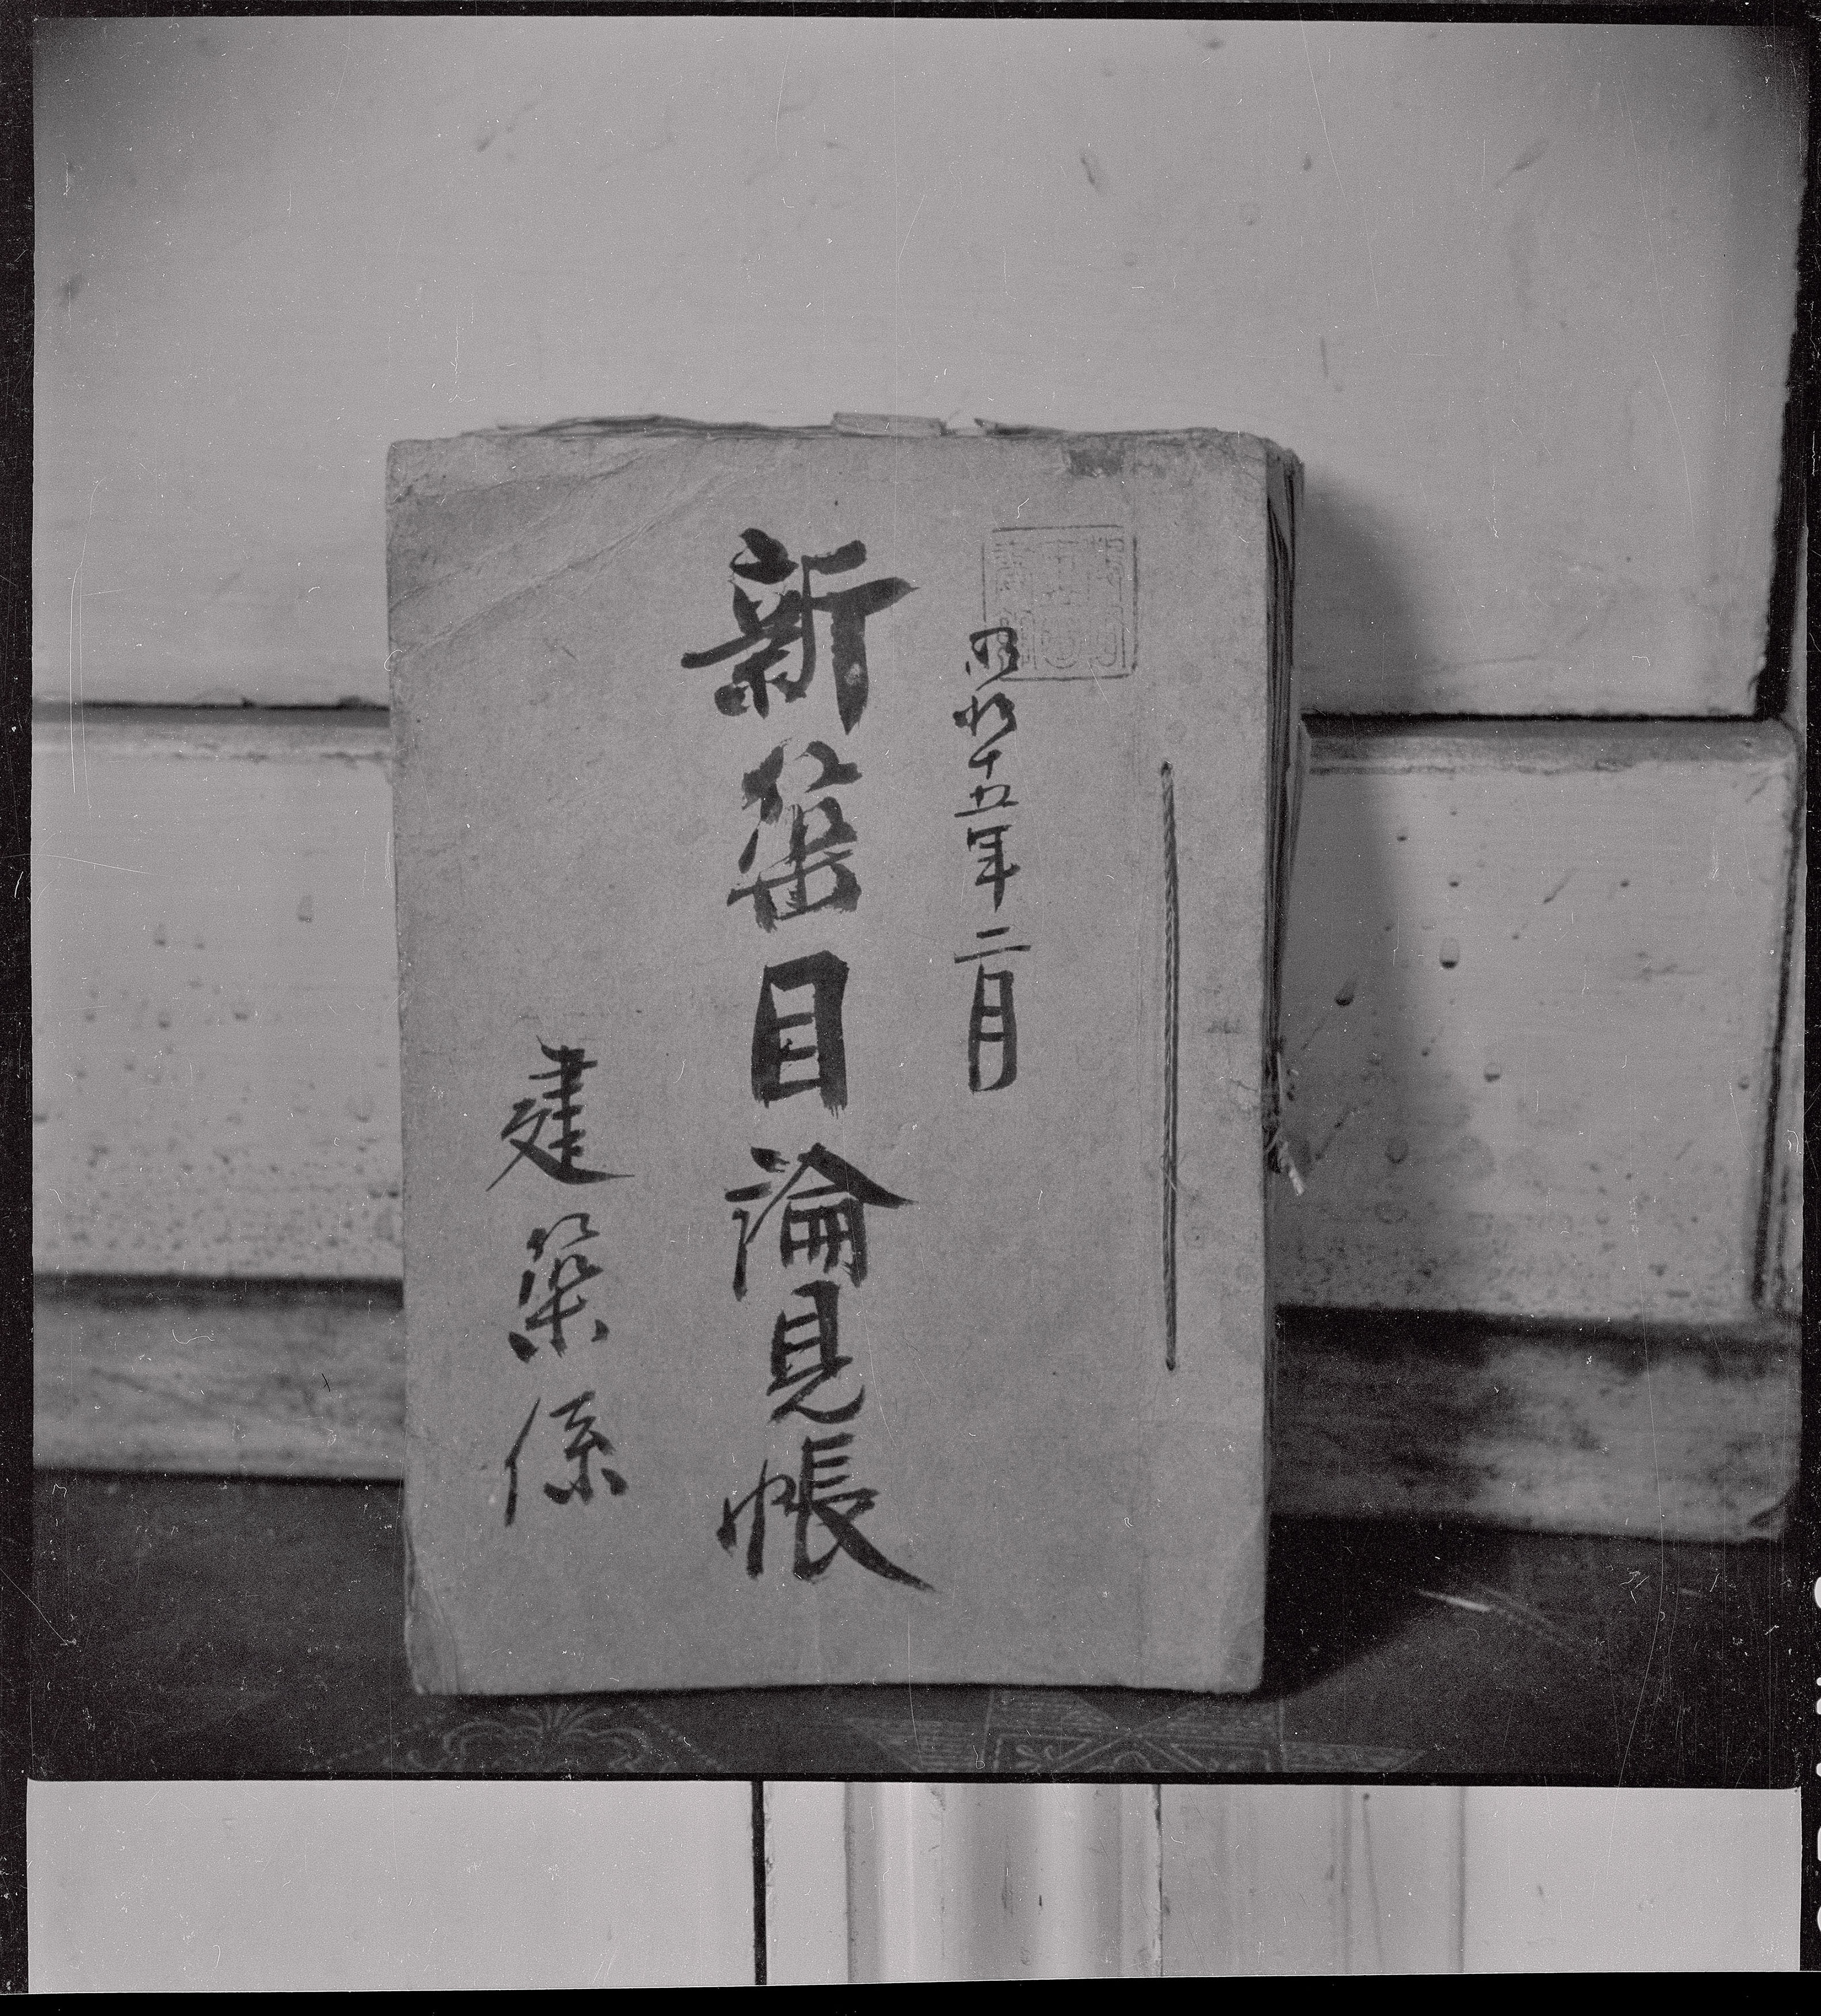 昭和十五年二月
新築目論見帳
建築係